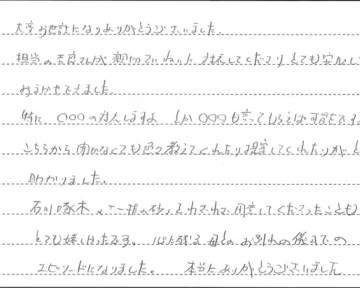 大変お世話になりありがとうございました。
担当の 親切でいねいに対応してくださりとても安心して
おまかせできました。
特に 〇〇〇の対応しますよ とか 〇〇〇も言ってもらえば可能です
こちらから聞かなくても色々教えてくれたり提案してくれたりが と
助かりました。
石川啄木の「一握の砂」それぞれ用意してくださったことも
とても嬉しかったです。 心に残る母とのお別れの後までの
エピソードになりました。 本当にありがとうございました